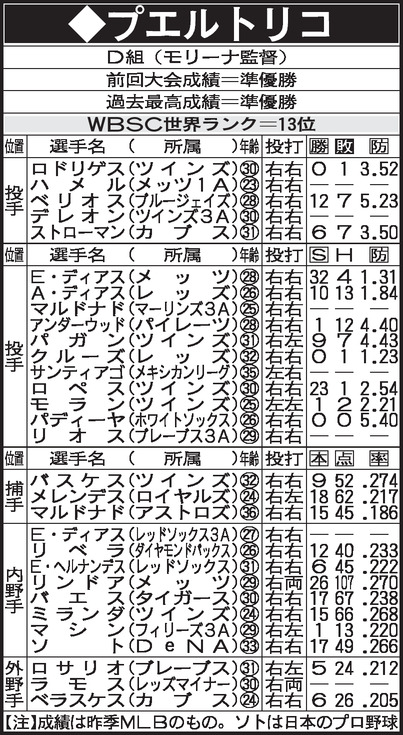 ◆プエルトリコ
D組（モリーナ監督）
前回大会成績＝準優勝
過去最高成績＝準優勝
WBSC世界ランク＝13位
位置 選手名（所属）年齢 投打 勝 敗 防
投手
ロドリゲス（ツインズ）㉚ 右右 0 1 3.52
ハメル（メッツ1A）㉓ 右右 ― ― ―
ベリオス（ブルージェイズ）㉘ 右右 12 7 5.23
デレオン（ツインズ3A）㉚ 右右 ― ― ―
ストローマン（カブス）㉛ 右右 6 7 3.50
位置 選手名（所属）年齢 投打 S H 防
投手
E・ディアス（メッツ）㉘ 右右 32 4 1.31
A・ディアス（レッズ）㉖ 右右 10 13 1.84
マルドナド（マーリンズ3A）㉕ 右右 ― ― ―
アンダーウッド（パイレーツ）㉘ 右右 1 12 4.40
パガン（ツインズ）㉛ 右左 9 7 4.43
クルーズ（レッズ）㉜ 右右 0 1 1.23
サンティアゴ（メキシカンリーグ）㉟ 右左 ― ― ―
ロペス（ツインズ）㉚ 右右 23 1 2.54
モラン（ツインズ）㉕ 左左 1 2 2.21
パディーヤ（ホワイトソックス）㉖ 右右 0 0 5.40
リオス（ブレーブス3A）㉙ 右右 ― ― ―
位置 選手名（所属）年齢 投打 本 点 率
捕手
バスケス（ツインズ）㉜ 右右 9 52 .274
メレンデス（ロイヤルズ）㉔ 右左 18 62 .217
マルドナド（アストロズ）㊱ 右右 15 45 .186
内野手
E・ディアス（レッドソックス3A）㉗ 右右 ― ― ―
リベラ（ダイヤモンドバックス）㉖ 右右 12 40 .233
E・ヘルナンデス（レッドソックス）㉛ 右右 6 45 .222
リンドア（メッツ）㉙ 右両 26 107 .270
バエス（タイガース）㉚ 右右 17 67 .238
ミランダ（ツインズ）㉔ 右右 15 66 .268
マシン（フィリーズ3A）㉙ 右左 1 13 .220
ソト（DeNA）㉝ 右右 17 49 .266
外野手
ロサリオ（ブレーブス）㉛ 右左 5 24 .212
ラモス（レッズマイナー）㉚ 右両 ― ― ―
ベラスケス（カブス）㉔ 右右 6 26 .205
【注】成績は昨季MLBのもの。ソトは日本のプロ野球